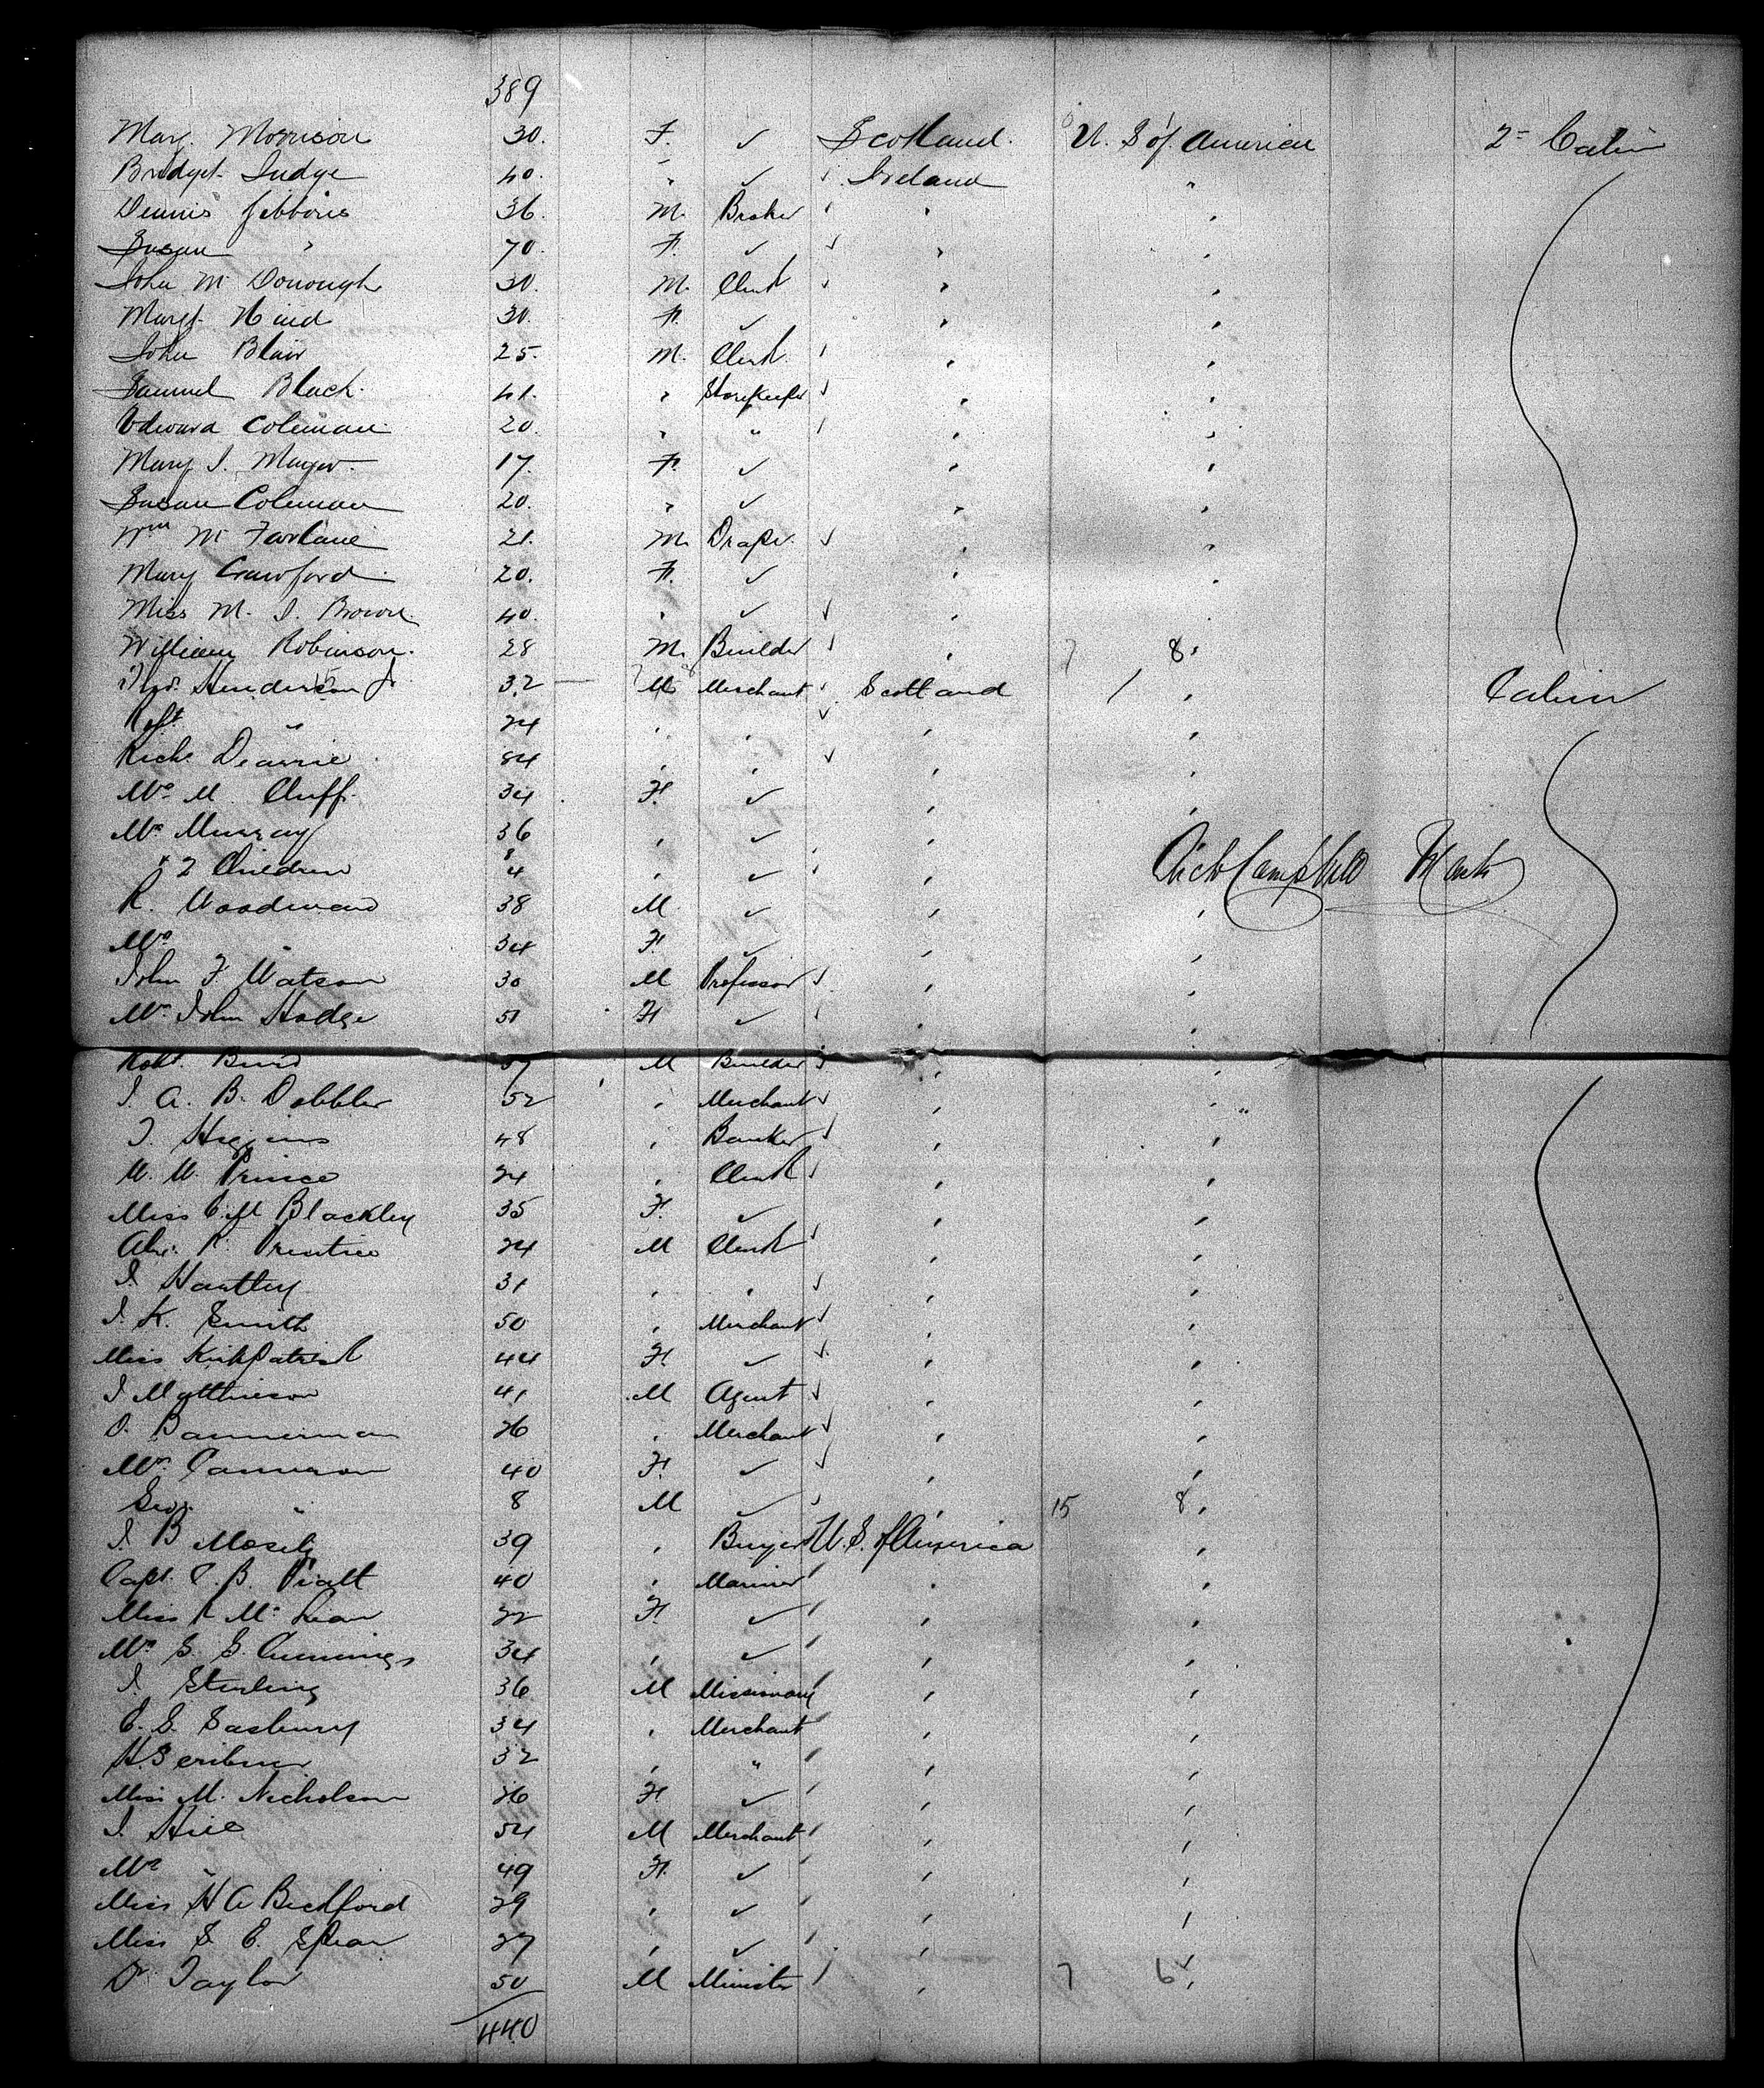 389
Mary Morrison 30. F. ✓ Scotland. U. S of America 2= Cabin
Bridget Judge 40. " ✓ Ireland "
Dennis Gibbons 36. M. Broker " "
Susan " 70. F. ✓ " "
John Mc Donough 30. M. Clerk " "
Margt. Hind 30. F. ✓ " "
John Blair 25. M. Clerk " "
Samuel Black. 41. " Storekeeper " "
Edward Coleman 20. " " " "
Mary J. Mayer. 17. F. ✓ " "
Susan Coleman 20. " ✓ " "
Wm Mc Farlane 21. M. Draper " "
Mary Crawford 20. F. ✓ " "
Miss M. J. Brown 40. " ✓ " "
William Robinson. 28 M. Builder " 7 8 "
Thos. Henderson Jr 32 M. Merchant Scotland / " Cabin
Robt. " 24 " " " "
Richd 54 " " " "
Mrs M. Cluff. 34 F. ✓ " "
Mrs Murray 36 " ✓ " "
& 2 Children 8 4 " ✓ " Archd Campbell
R. Woodward 38 M. ✓ " "
Mrs " 34 F. ✓ " "
John F Watson 30 M Professor " "
Mrs John Hodge 51 F ✓ " "
Robt. 57 M Builder " "
J. A. B. Dobbler 52 " Merchant " "
J. Higgins 48 " Banker " "
W. W. Prince 24 " Clerk " "
Miss C. M Blackley 35 F. ✓ " "
Alex. R. Prentice 24 M Clerk " "
J. Hartley 31 " " " "
J. K. Smith 50 " Merchant " "
Miss Kirkpatrick 44 F. ✓ " "
J Matthieson 41 M Agent " "
D. Bannerman 26 " Merchant " "
Mrs Cameron 40 F. ✓ " "
Geo. " 8 M ✓ " 15 8 "
J. B Mosely 39 " Buyer U. S. of America "
Capt. C. B. Pratt 40 " Mariner " "
Miss Mc Lean 22 F. ✓ " "
Mrs S. S. Cummings 34 " ✓ " "
J. Sterling 36 M Missionary " "
C. S. Sasbury 34 " Merchant " "
H. Scribner 32 " " " "
Miss M. Nicholson 26 F. ✓ " "
J. Hill 54 M Merchant " "
Mrs " 49 F. ✓ " "
Miss H A Beckford 29 " ✓ " "
Miss S. E. Spear 27 " ✓ " "
Dr Taylor 50 M Minister " 7 6 "
440